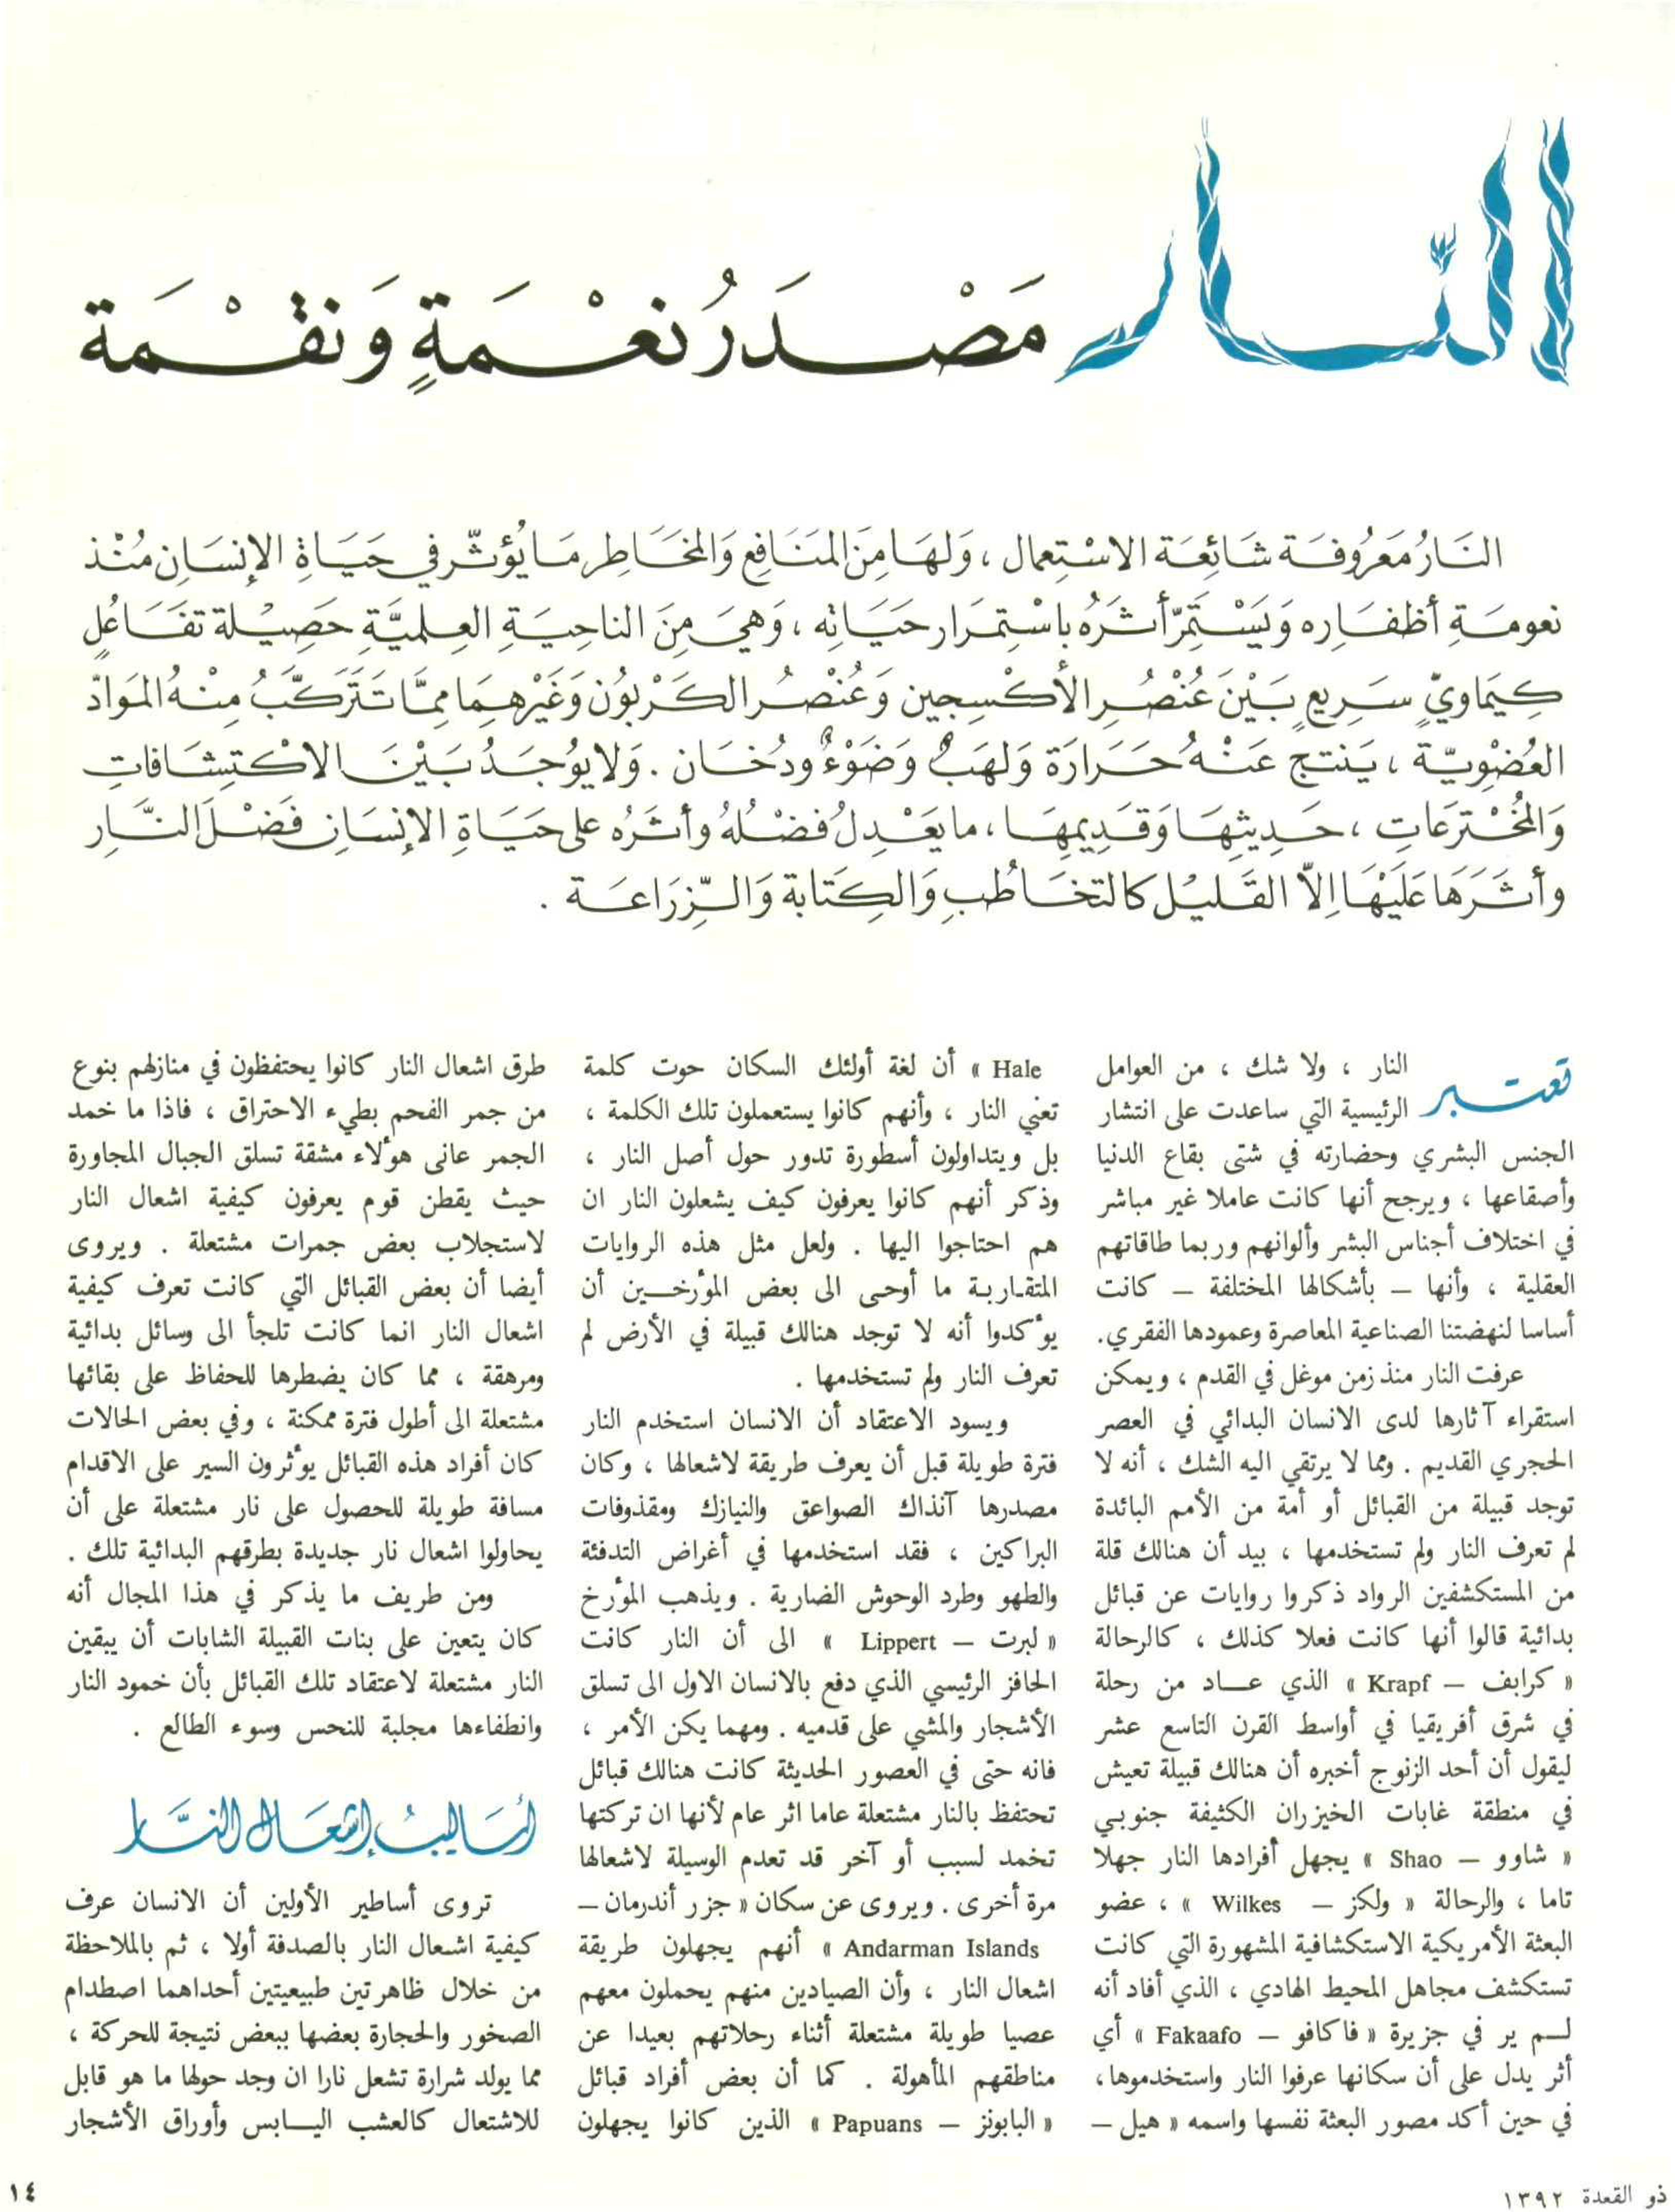 النّار مَصْدَرُ نعْمَةٍ وَنقْمَة
النَارُ مَعرُوفَة شَائِعَة الاسْتِعمال ، وَلهَا مِنَ المنَافِع وَالمخَاطِر مَا يُؤثّر في حَيَاةِ الإنسَان مُنْذ
نعومَةِ أظفَارِه وَيَسْتَمِرّ أثَرهُ باسْتِمرَار حَيَاتِه ، وَهيَ مِنَ الناحِيَةِ العِلميَّةِ حَصِيْلة تفَاعُلٍ
كِيَماويٍّ سَرِيعٍ بَيْنَ عُنْصُرِ الأكْسِجين وَعُنْصُر الكَرْبُون وَغَيْرهِمَا مِمَّا تَتَركَّبُ مِنْهُ المَوادّ
العُضْوِيّة ، يَنتج عَنْهُ حَرَارَة وَلهَبٌ وَضَوْءٌ ودُخَان . وَلا يوُجَدُ بَيْنَ الاكْتِشَافاتِ
وَالمُخْتَرعَاتِ ، حَدِيثِهَا وَقدِيمِهَا ، ما يَعْدِلُ فضْلُهُ وأثَرُه على حَيَاةِ الإنسَانِ فَضْلَ النَّارِ
وأثَرَهَا عَلَيْهَا اِلاّ القَليْل كالتخَاطُبِ وَالكِتَابة وَالزّرَاعَة .
تعتبر النار ، ولا شك ، من العوامل
الرئيسية التي ساعدت على انتشار
الجنس البشري وحضارته في شتى بقاع الدنيا
وأصقاعها ، ويرجح أنها كانت عاملا غير مباشر
في اختلاف أجناس البشر وألوانهم وربما طاقاتهم
العقلية ، وأنها – بأشكالها المختلفة – كانت
أساسا لنهضتنا الصناعية المعاصرة وعمودها الفقري.
عرفت النار منذ زمن موغل في القدم ، ويمكن
استقراء آثارها لدى الانسان البدائي في العصر
الحجري القديم . ومما لا يرتقي اليه الشك ، أنه لا
توجد قبيلة من القبائل أو أمة من الأمم البائدة
لم تعرف النار ولم تستخدمها ، بيد أن هنالك قلة
من المستكشفين الرواد ذكروا روايات عن قبائل
بدائية قالوا أنها كانت فعلا كذلك ، كالرحالة
« كرابف – Krapf » الذي عــاد من رحلة
في شرق أفريقيا في أواسط القرن التاسع عشر
ليقول أن أحد الزنوج أخبره أن هنالك قبيلة تعيش
في منطقة غابات الخيزران الكثيفة جنوبي
« شاوو – Shao » يجهل أفرادها النار جهلا
تاما ، والرحالة « ولكز – Wilkes » ، عضو
البعثة الأمريكية الاستكشافية المشهورة التي كانت
تستكشف مجاهل المحيط الهادي ، الذي أفاد أنه
لـم ير في جزيرة « فاكافو – Fakaafo » أي
أثر يدل على أن سكانها عرفوا النار واستخدموها،
في حين أكد مصور البعثة نفسها واسمه « هيل –
Hale » أن لغة أولئك السكان حوت كلمة
تعني النار ، وأنهم كانوا يستعملون تلك الكلمة ،
بل ويتداولون أسطورة تدور حول أصل النار ،
وذكر أنهم كانوا يعرفون كيف يشعلون النار ان
هم احتاجوا اليها . ولعل مثل هذه الروايات
المتقاربة ما أوحى الى بعض المؤرخــين أن
يؤكدوا أنه لا توجد هنالك قبيلة في الأرض لم
تعرف النار ولم تستخدمها .
ويسود الاعتقاد أن الانسان استخدم النار
فترة طويلة قبل أن يعرف طريقة لاشعالها ، وكان
مصدرها آنذاك الصواعق والنيازك ومقذوفات
البراكين ، فقد استخدمها في أغراض التدفئة
والطهو وطرد الوحوش الضارية . ويذهب المؤرخ
« لبرت – Lippert » الى أن النار كانت
الحافز الرئيسي الذي دفع بالانسان الاول الى تسلق
الأشجار والمشي على قدميه . ومهما يكن الأمر ،
فانه حتى في العصور الحديثة كانت هنالك قبائل
تحتفظ بالنار مشتعلة عاما اثر عام لأنها ان تركتها
تخمد لسبب أو آخر قد تعدم الوسيلة لاشعالها
مرة أخرى . ويروى عن سكان « جزر أندرمان –
Andarman Islands » أنهم يجهلون طريقة
اشعال النار ، وأن الصيادين منهم يحملون معهم
عصيا طويلة مشتعلة أثناء رحلاتهم بعيدا عن
مناطقهم المأهولة . كما أن بعض أفراد قبائل
« البابونز – Papuans » الذين كانوا يجهلون
طرق اشعال النار كانوا يحتفظون في منازلهم بنوع
من جمر الفحم بطيء الاحتراق ، فاذا ما خمد
الجمر عانى هؤلاء مشقة تسلق الجبال المجاورة
حيث يقطن قوم يعرفون كيفية اشعال النار
لاستجلاب بعض جمرات مشتعلة . ويروى
أيضا أن بعض القبائل التي كانت تعرف كيفية
اشعال النار انما كانت تلجأ الى وسائل بدائية
ومرهقة ، مما كان يضطرها للحفاظ على بقائها
مشتعلة الى أطول فترة ممكنة ، وفي بعض الحالات
كان أفراد هذه القبائل يؤثرون السير على الاقدام
مسافة طويلة للحصول على نار مشتعلة على أن
يحاولوا اشعال نار جديدة بطرقهم البدائية تلك .
ومن طريف ما يذكر في هذا المجال أنه
كان يتعين على بنات القبيلة الشابات أن يبقين
النار مشتعلة لاعتقاد تلك القبائل بأن خمود النار
وانطفاءها مجلبة للنحس وسوء الطالع .
أسَاليبُ إشعَال النَّار
تروى أساطير الأولين أن الانسان عرف
كيفية اشعال النار بالصدفة أولا ، ثم بالملاحظة
من خلال ظاهرتين طبيعيتين أحداهما اصطدام
الصخور والحجارة بعضها ببعض نتيجة للحركة ،
مما يولد شرارة تشعل نارا ان وجد حولها ما هو قابل
للاشتعال كالعشب اليــابس وأوراق الأشجار
ذو القعدة ١٣٩٢
١٤